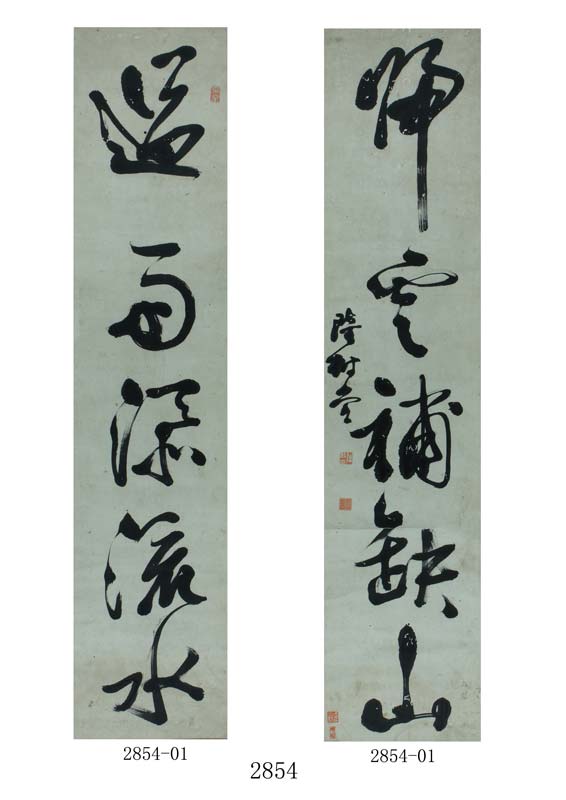 歸雲補缺山
陸樹堂
過雨添流水
2854-01
2854-01
2854